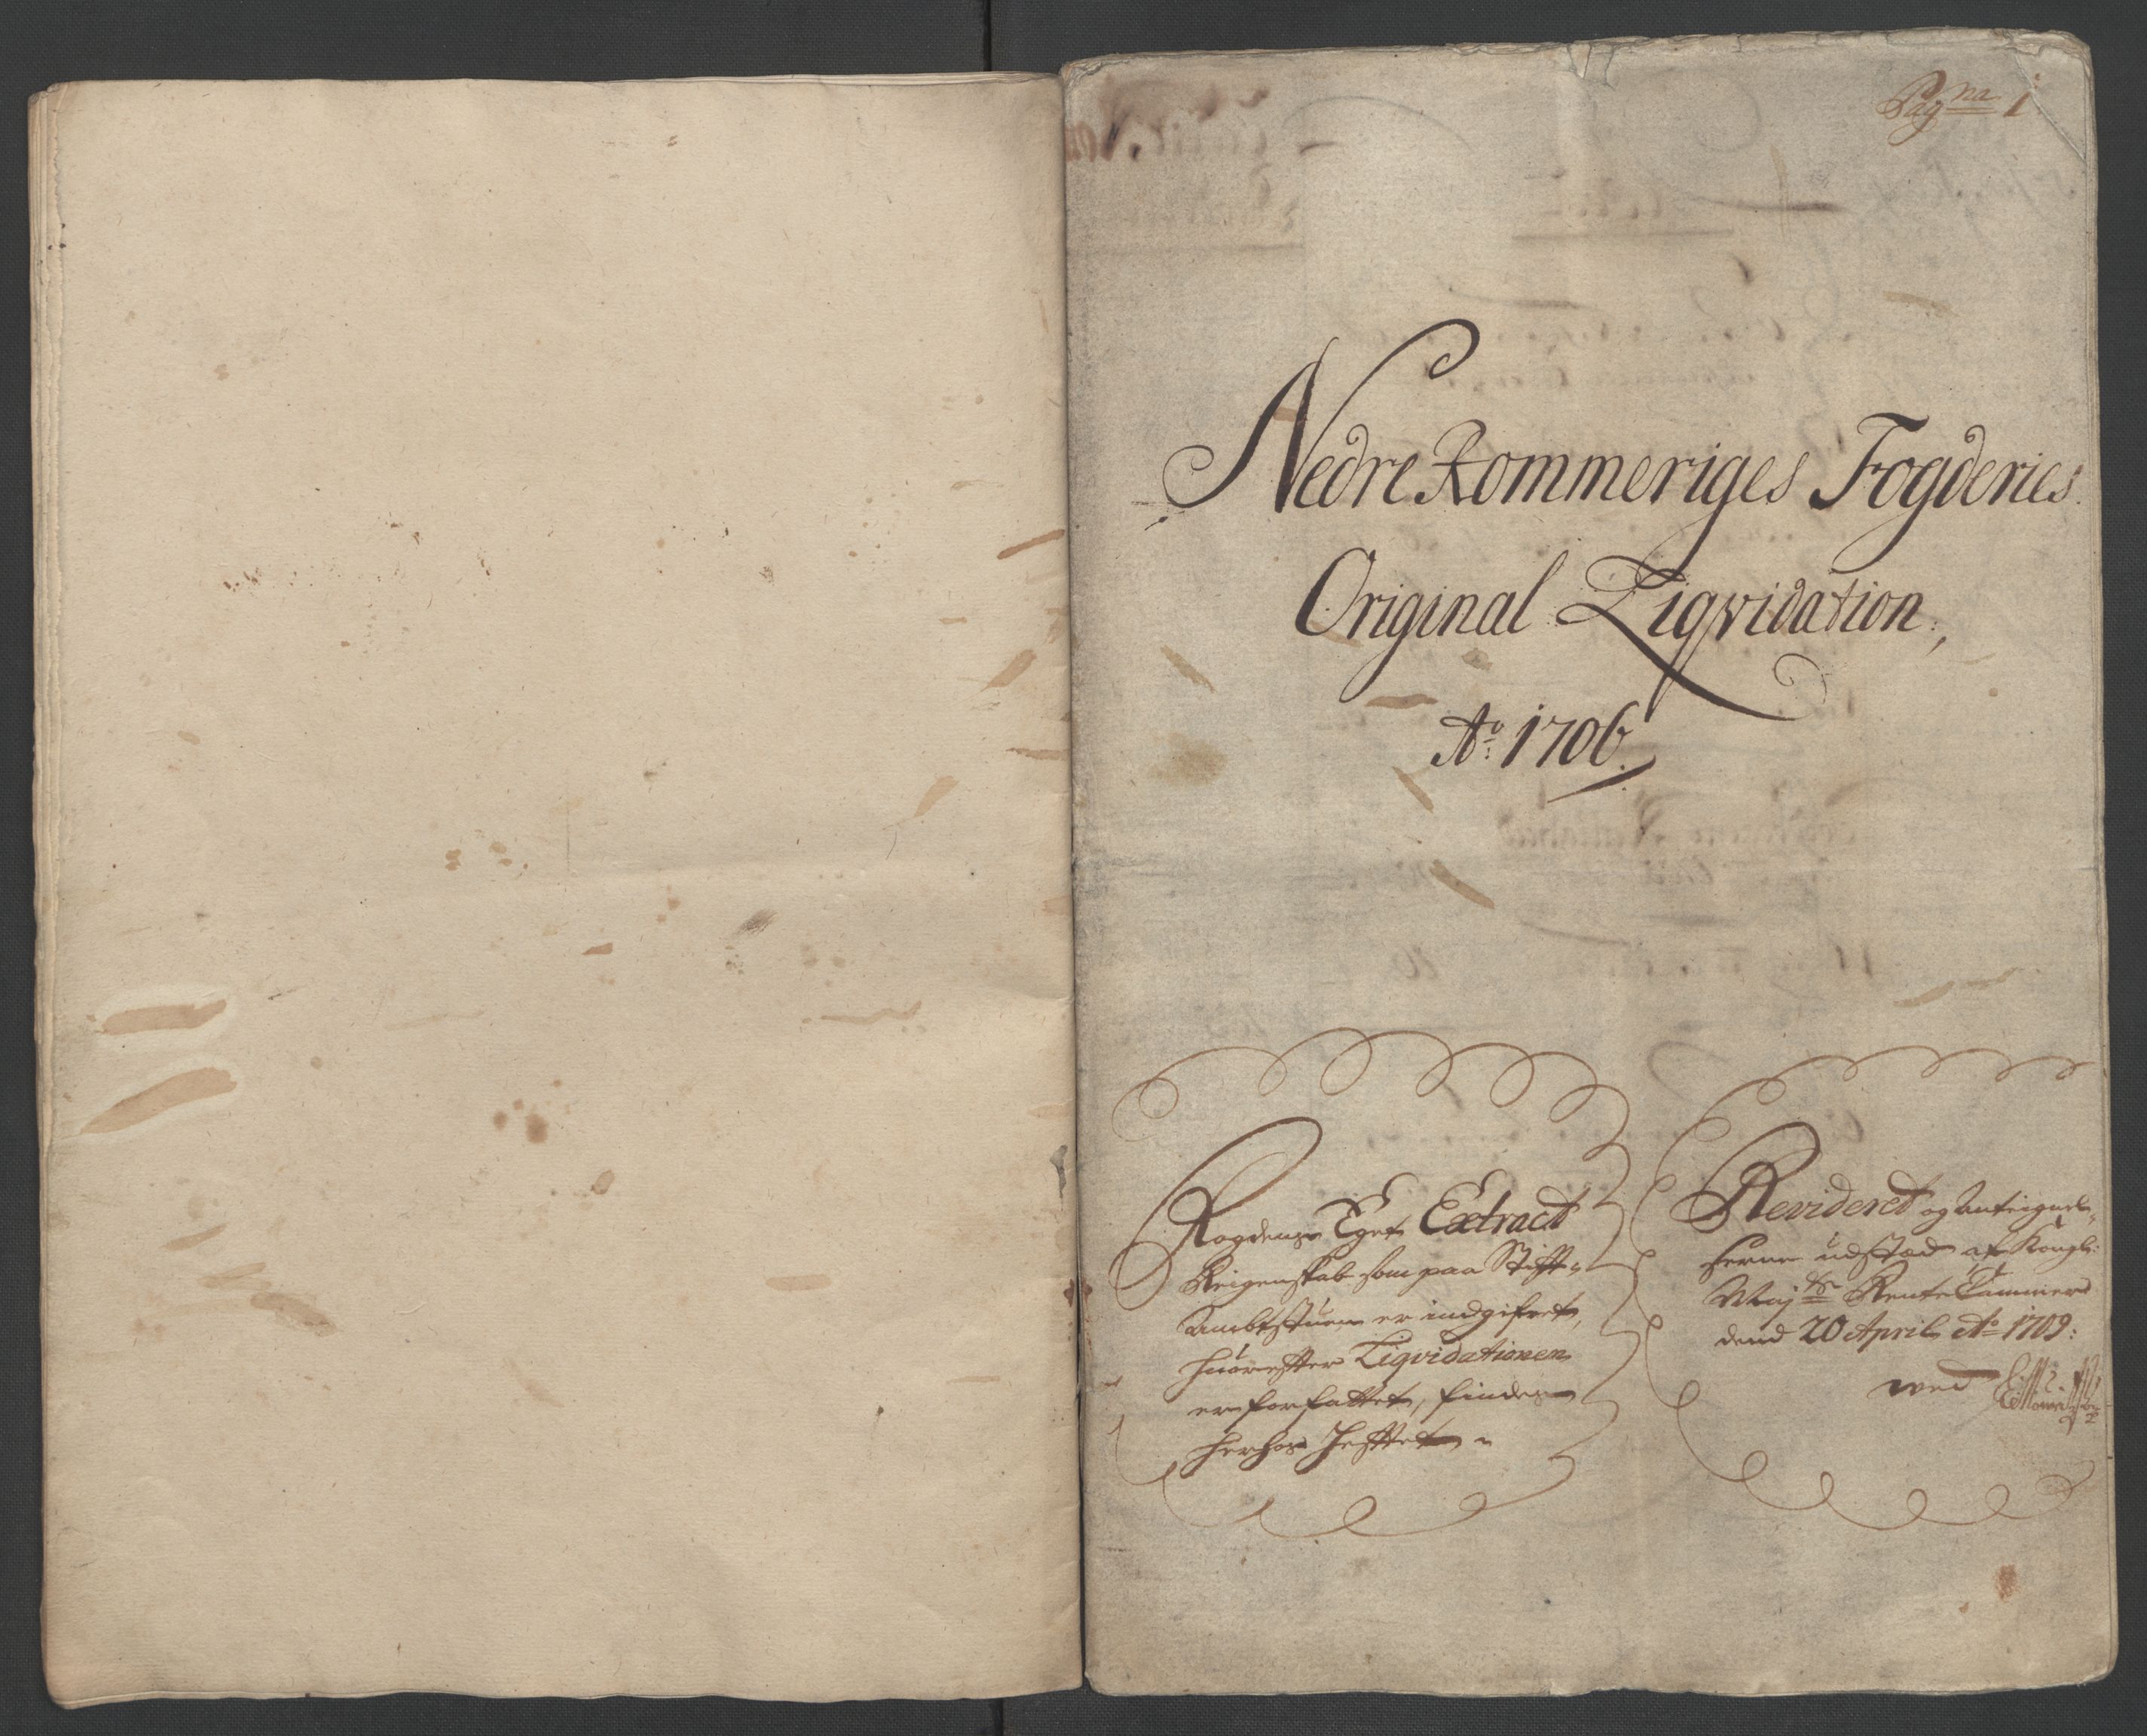 Pag na 1
Nedre Rommeriges Fogderies
Original Liqvidation,
Ao 1706
Fogdens Eget Extract
Reigenskab som paa Stifft-
Ambtstuen er indgifvet,
huorefter Liqvidationen
er forfattet, findes
herhos hefftet
Revideret og Antegnel-
serne udstæd af Kongl:
Maj ts Rente Cammer
dend 20 April Ao 1709:
ved